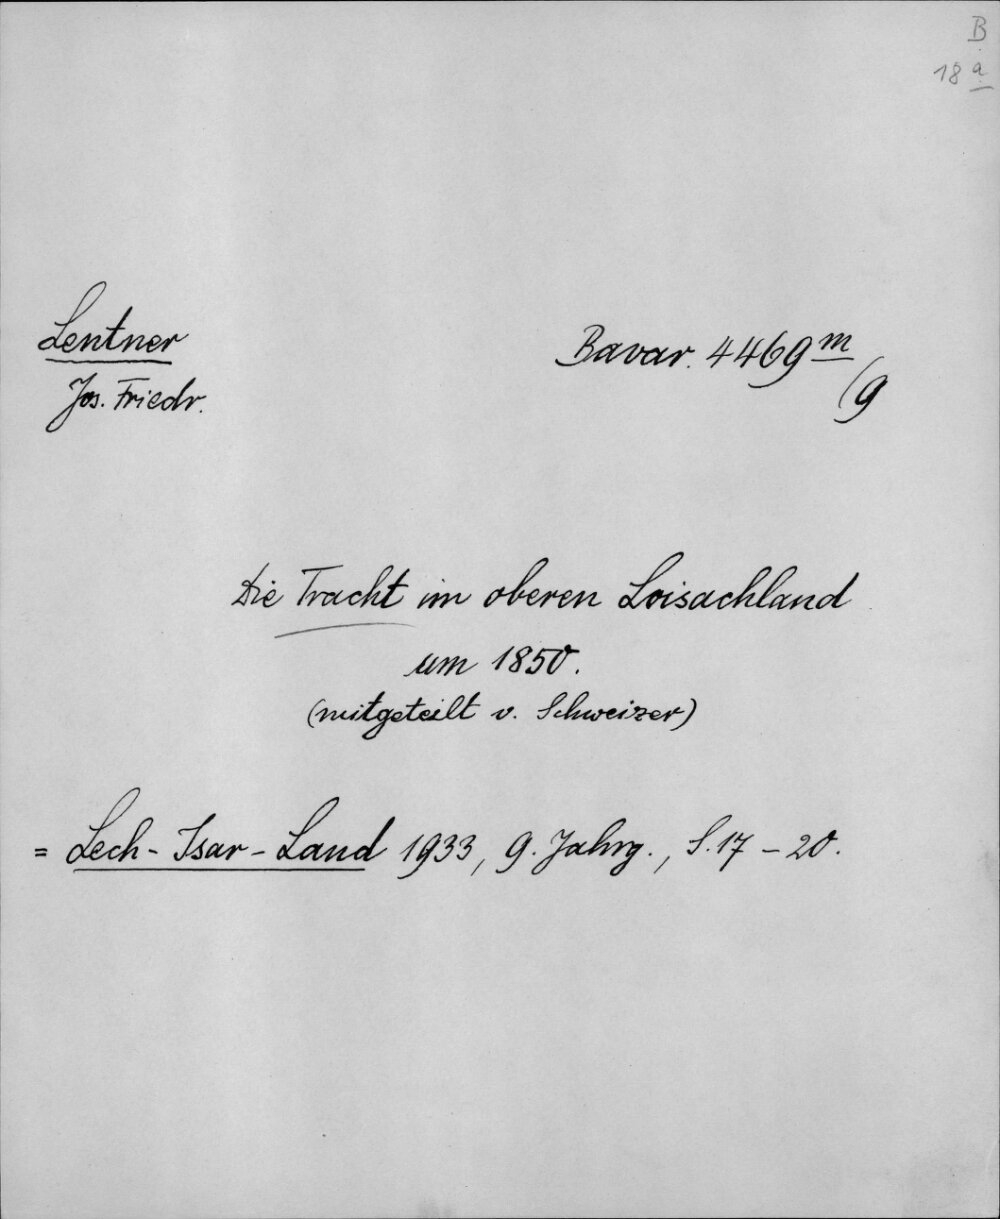 B
18 a
Lentner
Jos. Friedr.
Bavar. 4469 m
/9
Die Tracht im oberen Loisachland
um 1850.
(mitgeteilt v. Schweizer)
= Lech-Isar-Land 1933, 9. Jahrg., S. 17 – 20.